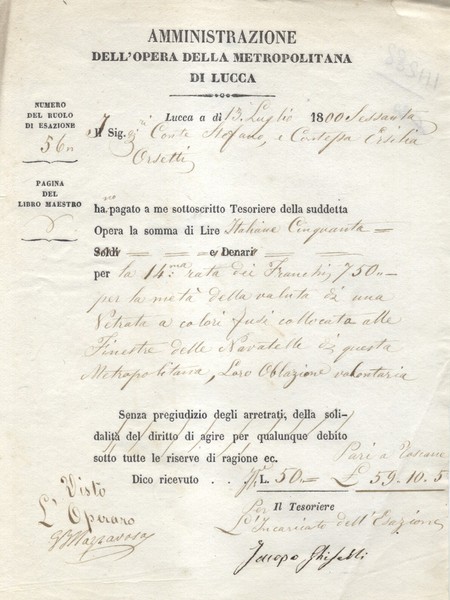 AMMINISTRAZIONE
DELL'OPERA DELLA METROPOLITANA
DI LUCCA
NUMERO
DEL RUOLO
DI ESAZIONE
56
PAGINA
DEL
LIBRO MAESTRO
Lucca a dì 13 Luglio 1800 Sessanta
Il Sig. Conte Stefano, e Contessa Ersilia
Orsetti
ha pagato a me sottoscritto Tesoriere della suddetta
Opera la somma di Lire Italiane Cinquanta
Soldi e Denari
per la 14ma rata dei Franchi 750
per la metà della valuta di una
Vetrata a colori fusi collocata alle
Finestre delle Navatelle di questa
Metropolitana, Loro Oblazione volontaria
Senza pregiudizio degli arretrati, della soli-
dalità del diritto di agire per qualunque debito
sotto tutte le riserve di ragione ec.
Pari a Toscane
Dico ricevuto . . L. 50 £ 59.10.5
Visto
L'Operaro
Per Il Tesoriere
L'Incaricato dell'Esazione
Jacopo